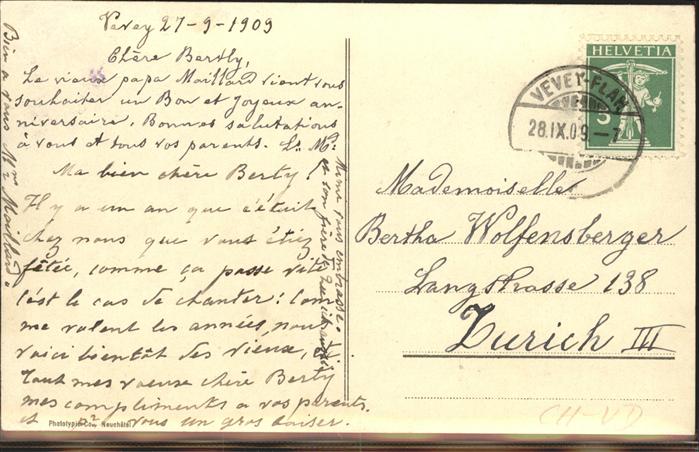 Vevey 27-9-1909
Chère Berthy,
Le vieux papa Maillard vient vous
souhaiter un Bon et Joyeux an-
niversaire. Bonnes salutations
à vous et tous vos parents. Ls. Md.
Ma bien chère Berty!
Il y a un an que c'était
chez nous que vous étiez
fêtée, comme ça passe vite
c'est le cas de chanter: Com
me volent les années, nous
voici bientôt des vieux,
Tout mes voeux chère Berty
mes compliments a vos parents.
et vous un gros baiser.
Bien a vous Mme Maillard.
Mimi vous embrasse.
et son frère de Zurich aussi
HELVETIA
5
VEVEY-PLAN
28.IX.09.-7
Mademoiselle
Bertha Wolfensberger
Langstrasse 138
Zurich III
CH-VD
Phototypie Co., Neuchâtel